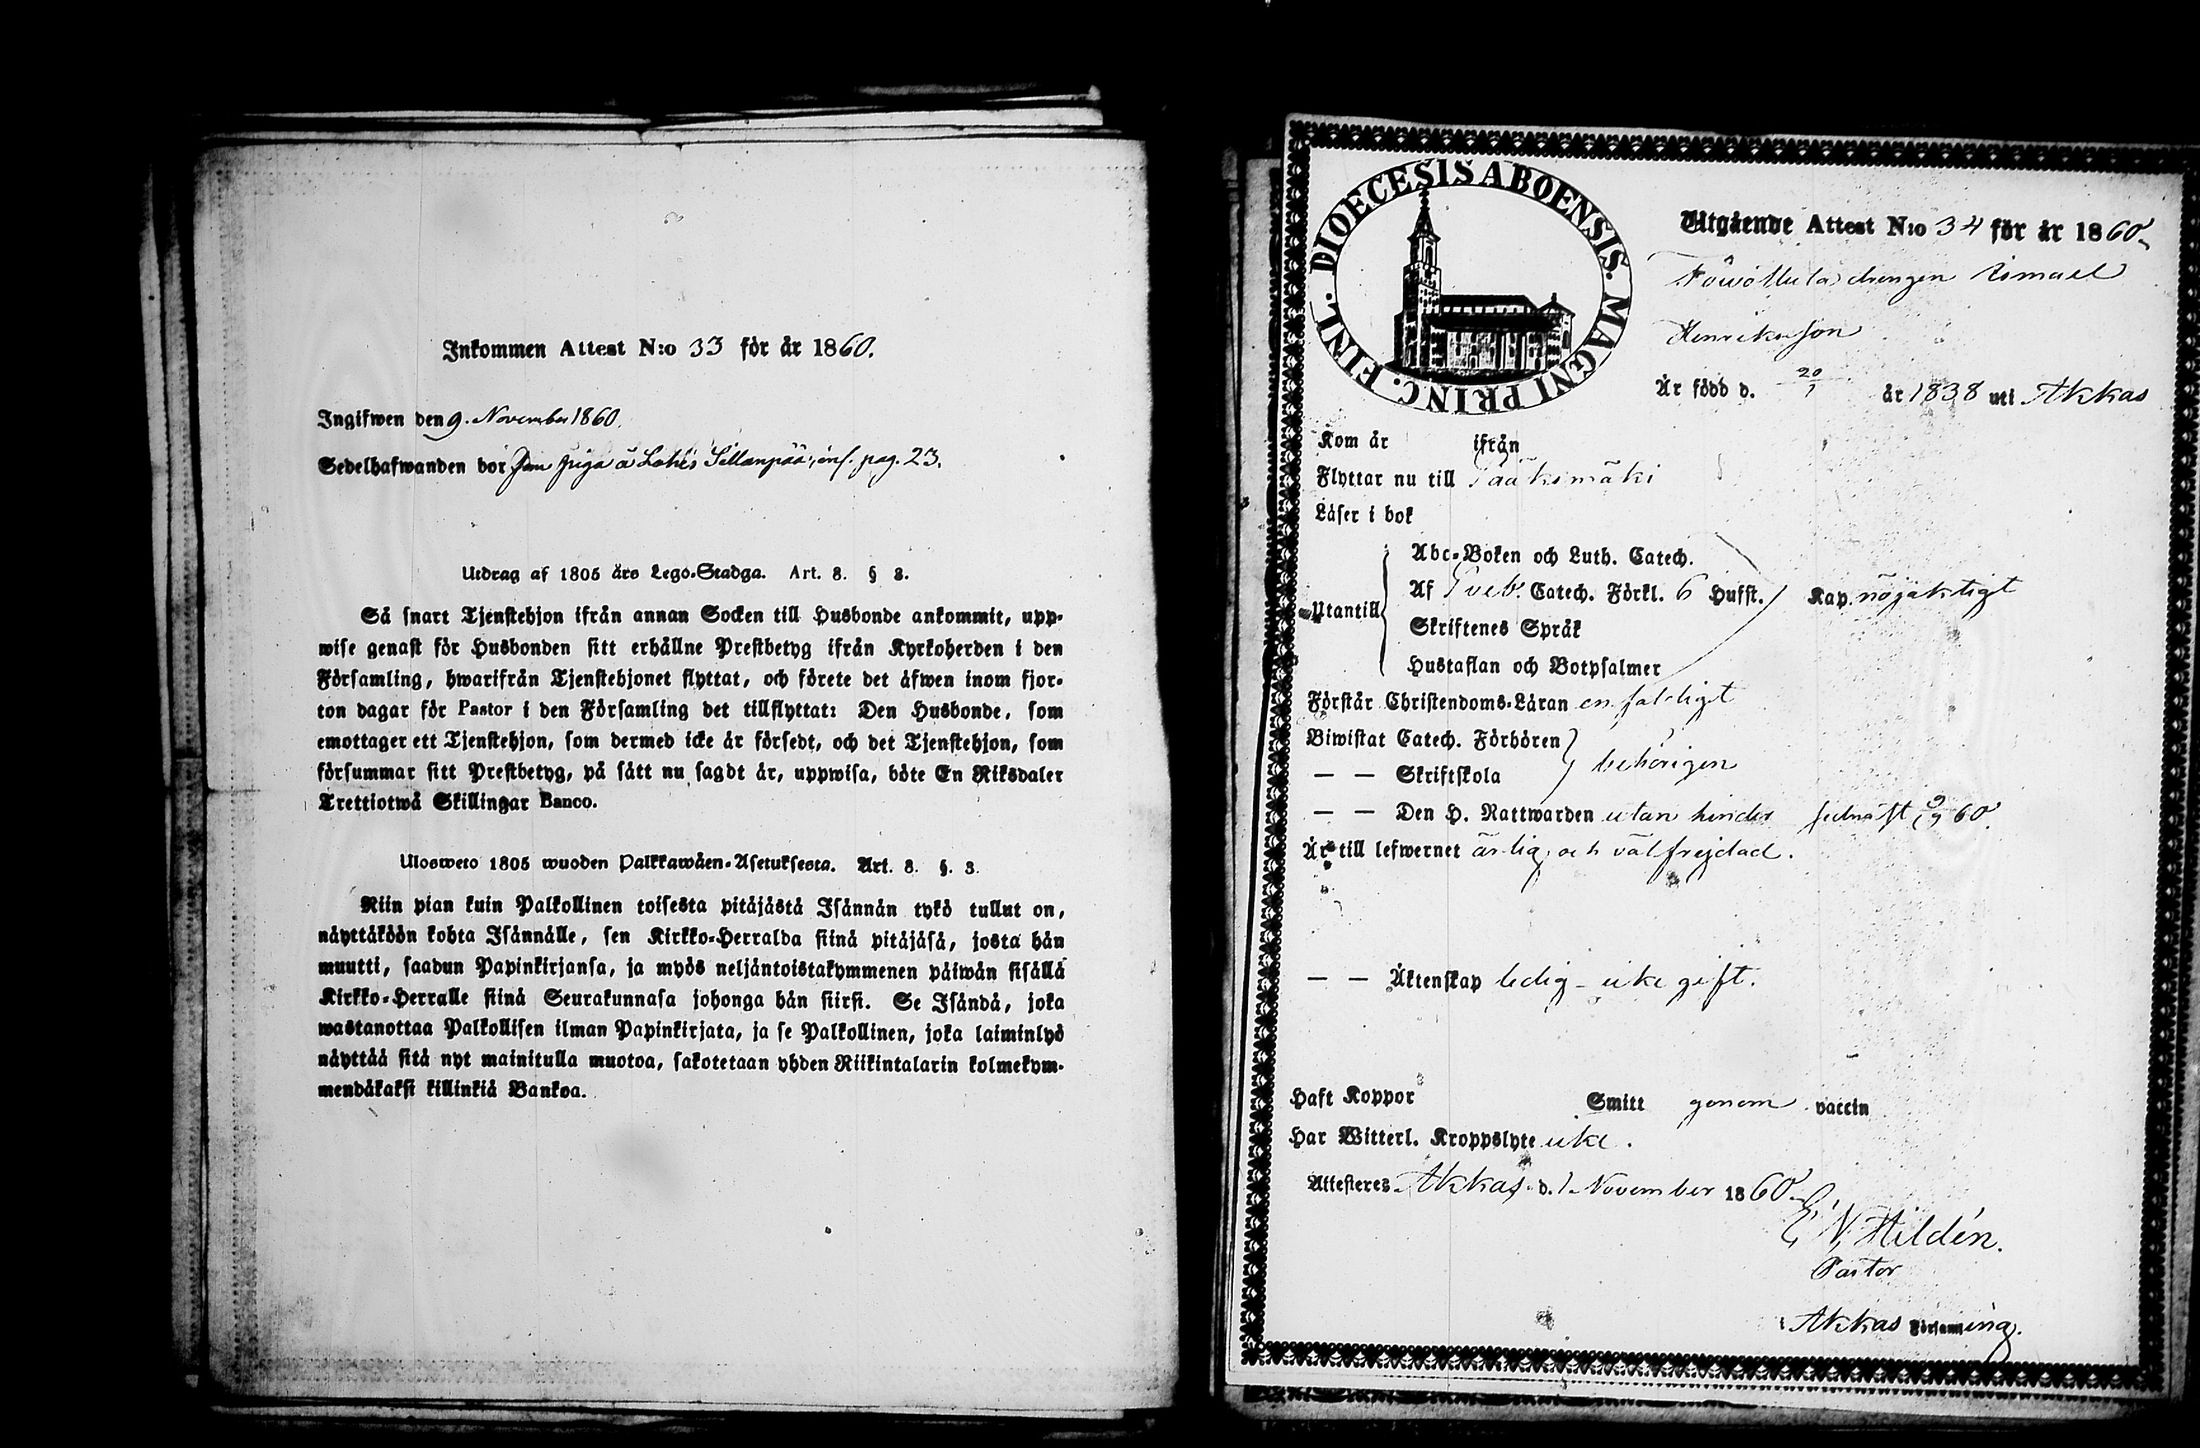 Inkommen Attest N:o 33 för år 1860.
Ingifwen den 9. November 1860.
Sedelhafwanden bor som piga å Lahis Sillanpää, inf. pag. 23.
Utdrag af 1805 års Lego-Stadga. Art. 8. § 3.
Så snart Tjenstehjon ifrån annan Socken till Husbonde ankommit, upp-
wise genast för Husbonden sitt erhållne Prestbetyg ifrån Kyrkoherden i den
Församling, hwarifrån Tjenstehjonet flyttat, och förete det äfwen inom fjor-
ton dagar för Pastor i den Församling det tillflyttat: Den Husbonde, som
emottager ett Tjenstehjon, som dermed icke är försedt, och det Tjenstehjon, som
försummar sitt Prestbetyg, på sätt nu sagdt är, uppwisa, böte En Riksdaler
Trettiotwå Skillingar Banco.
Ulosweto 1805 wuoden Palkkawäen-Asetuksesta. Art. 8. §. 3.
Niin pian kuin Palkollinen toisesta pitäjästä Isännän tykö tullut on,
näyttäköön kohta Isännälle, sen Kirkko-Herralda siinä pitäjäsä, josta hän
muutti, saadun Papinkirjansa, ja myös neljäntoistakymmenen päiwän sisällä
Kirkko-Herralle siinä Seurakunnasa johonga hän siirsi. Se Isändä, joka
wastanottaa Palkollisen ilman Papinkirjata, ja se Palkollinen, joka laiminlyö
näyttää sitä nyt mainitulla muotoa, sakotetaan yhden Riikintalarin kolmekym-
mendäkaksi killinkiä Bankoa.
DIOECESIS ABOENSIS. MAGNI PRINC. FINL.
Utgående Attest N:o 34 för år 1860
drengen Ismael
Henriksson
Är född d. 20/1 år 1838 uti Akkas
Kom år ifrån
Flyttar nu till Sääksmäki
Läser i bok
Utantill
Abc-Boken och Luth. Catech.
Af Sveb. Catech. Förkl. 6 Hufst. Kap. nöjaktigt
Skriftenes Språk
Hustaflan och Botpsalmer
Förstår Christendoms-Läran enfaldigt
Biwistat Catech. Förhören
— — Skriftskola behörigen
— — Den H. Nattwarden utan hinder sednast 9/9 60.
Är till lefwernet ärlig och välfrejdad.
— — Äktenskap ledig - icke gift.
Haft Koppor Smitt genom vaccin
Har Witterl. Kroppslyte icke.
Attesteres Akkas d. 1 November 1860
E. N. Hildén.
Pastor
Akkas Församling.